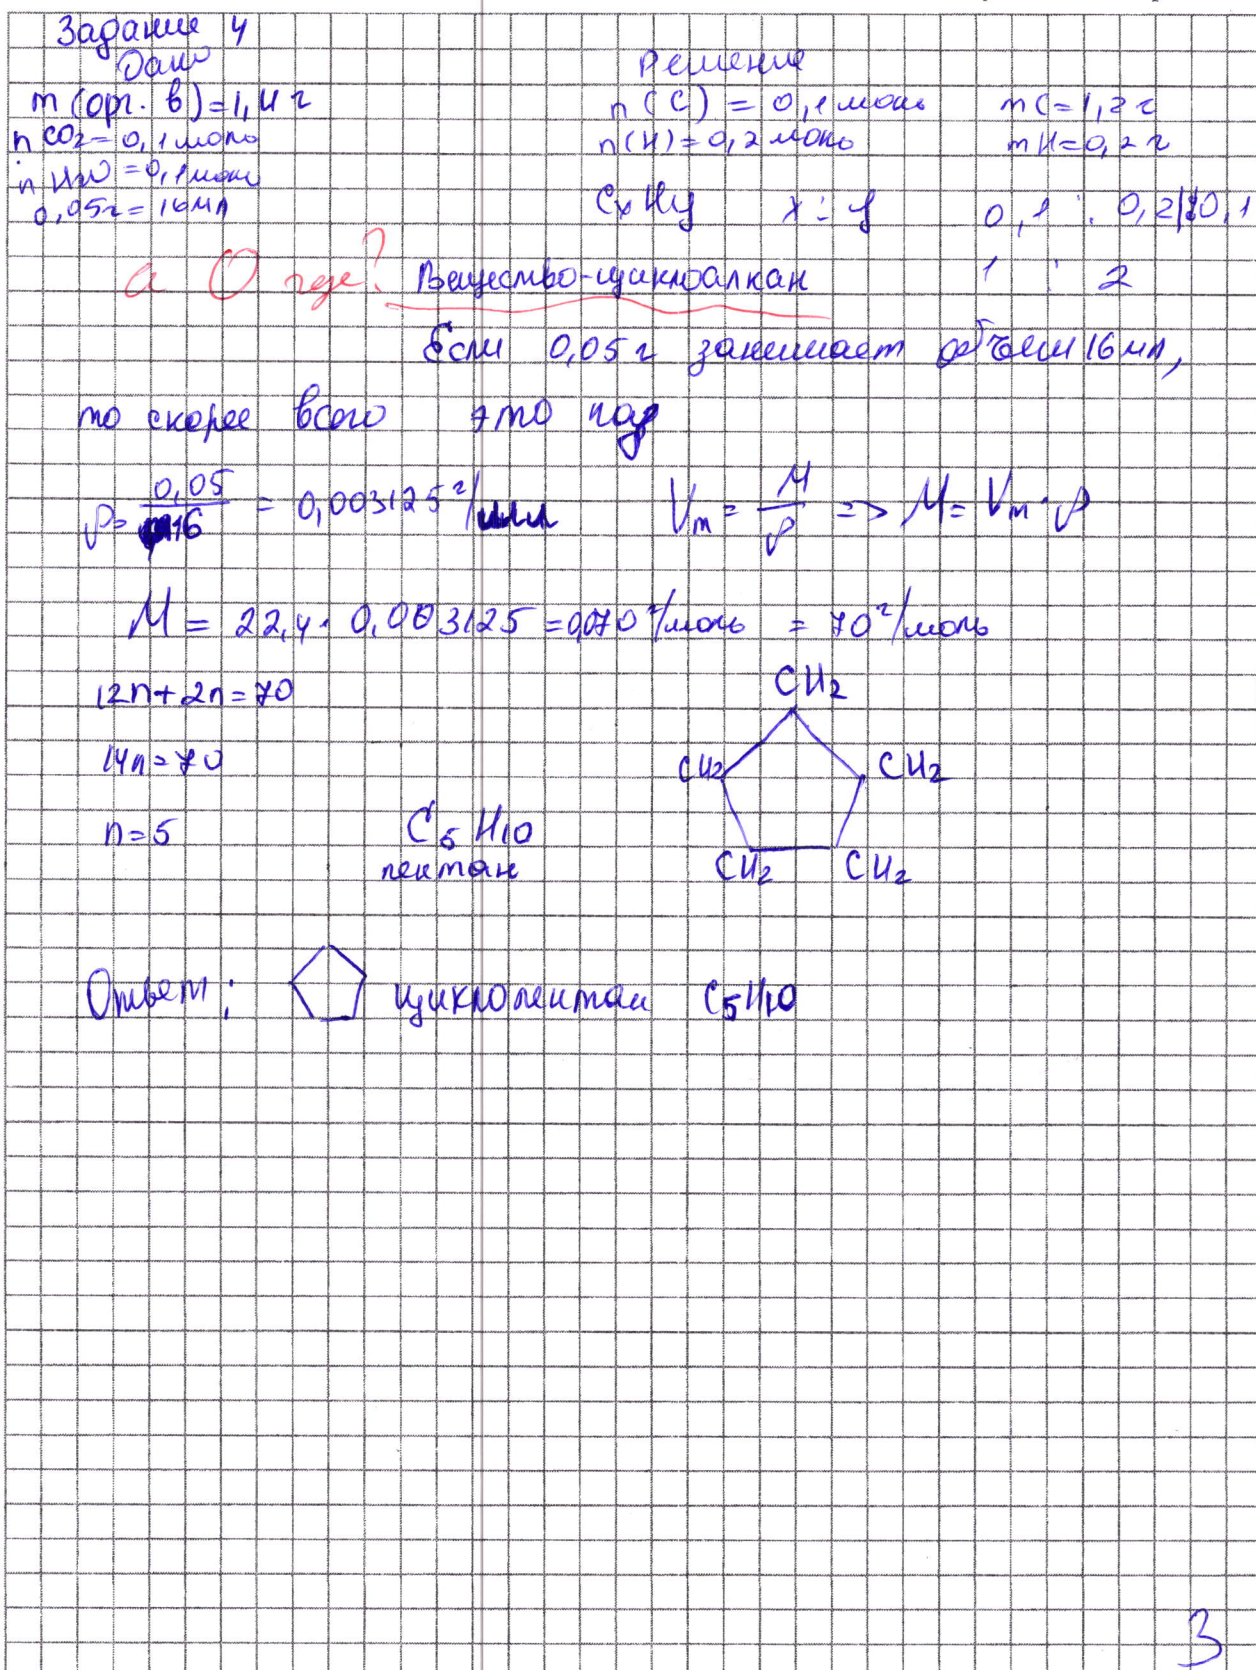 Задание 4
Дано
Решение
m (орг. в) = 1,4 г
n (C) = 0,1 моль mC = 1,2 г
n CO2 = 0,1 моль
n(H) = 0,2 моль mH = 0,2 г
n H2O = 0,1 моль
0,05г = 16мл
CxHy x : y 0,1 : 0,2 | :0,1
1 : 2
а О где?
Вещество - циклоалкан
Если 0,05 г занимает объем 16 мл,
то скорее всего это газ
ρ = 0,05/16 = 0,003125 г/мл Vm = M/ρ => M = Vm · ρ
M = 22,4 · 0,003125 = 0,070 г/моль = 70 г/моль
12n + 2n = 70
14n = 70
n = 5
C5H10
пентан
CH2
CH2 CH2
CH2 CH2
Ответ: циклопентан C5H10
3